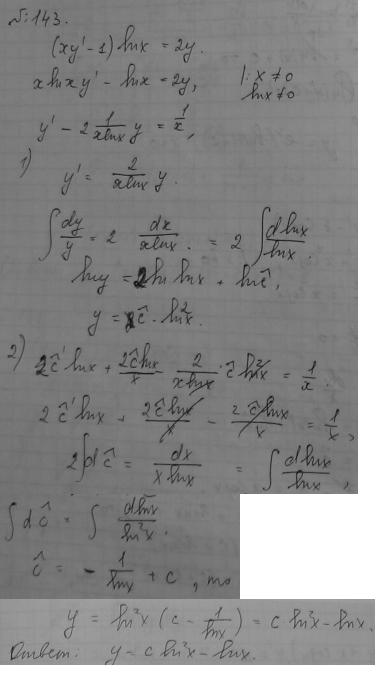 №143.
(xy' - 1) ln x = 2y.
x ln x y' - ln x = 2y, | : x ≠ 0
ln x ≠ 0
y' - 2 1/(x ln x) y = 1/x,
1) y' = 2/(x ln x) y.
∫ dy/y = 2 dx/(x ln x). = 2 ∫ d ln x/ln x.
ln y = 2 ln ln x + ln ĉ,
y = ĉ · ln²x.
2) 2ĉ' ln x + 2ĉ ln x/x - 2/(x ln x) · ĉ ln²x = 1/x.
2ĉ' ln x + 2ĉ ln x/x - 2ĉ ln x/x = 1/x,
2∫dĉ = dx/(x ln x) = ∫ d ln x/ln x,
∫dĉ = ∫ d ln x/ln²x.
ĉ = - 1/ln x + c, то
y = ln²x (c - 1/ln x) = c ln²x - ln x.
Ответ: y = c ln²x - ln x.